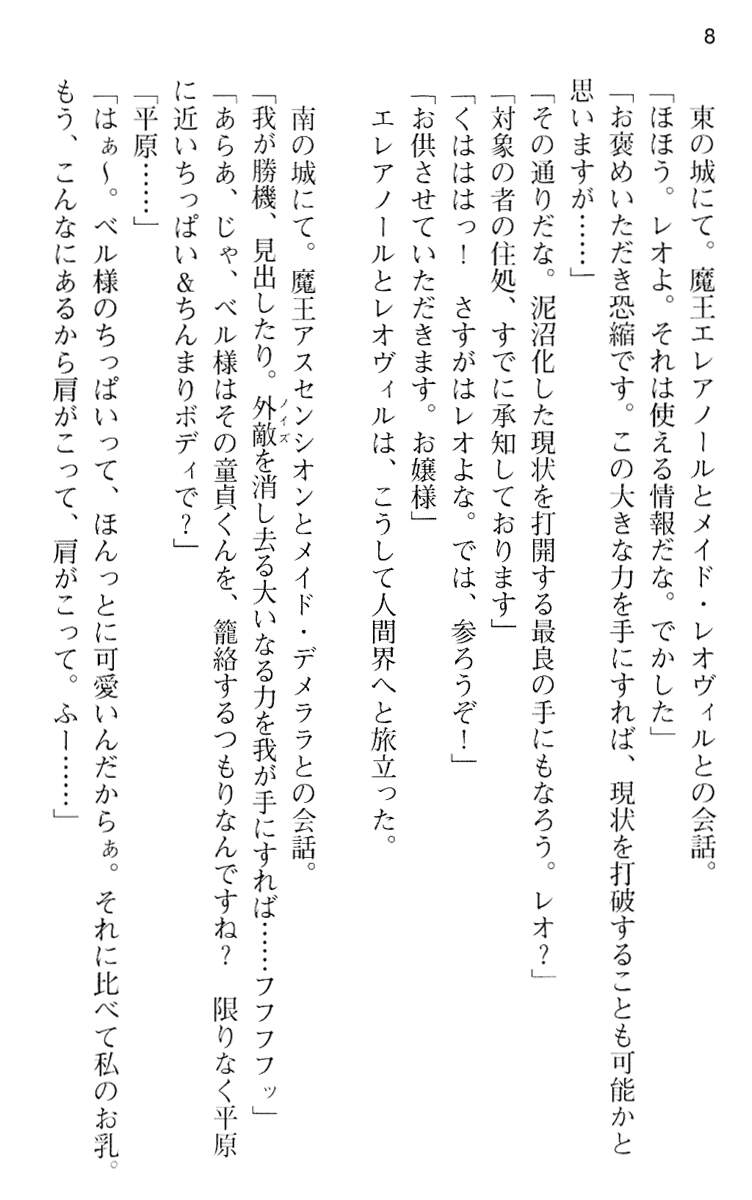 8
東の城にて。魔王エレアノールとメイド・レオヴィルとの会話。
「ほほう。レオよ。それは使える情報だな。でかした」
「お褒めいただき恐縮です。この大きな力を手にすれば、現状を打破することも可能かと
思いますが……」
「その通りだな。泥沼化した現状を打開する最良の手にもなろう。レオ？」
「対象の者の住処、すでに承知しております」
「くはははっ！　さすがはレオよな。では、参ろうぞ！」
「お供させていただきます。お嬢様」
エレアノールとレオヴィルは、こうして人間界へと旅立った。
南の城にて。魔王アスセンシオンとメイド・デメララとの会話。
「我が勝機、見出したり。外敵ノイズを消し去る大いなる力を我が手にすれば……フフフフッ」
「あらあ、じゃ、ベル様はその童貞くんを、籠絡するつもりなんですね？　限りなく平原
に近いちっぱい＆ちんまりボディで？」
「平原……」
「はぁ〜。ベル様のちっぱいって、ほんっとに可愛いんだからぁ。それに比べて私のお乳。
もう、こんなにあるから肩がこって、肩がこって。ふー……」